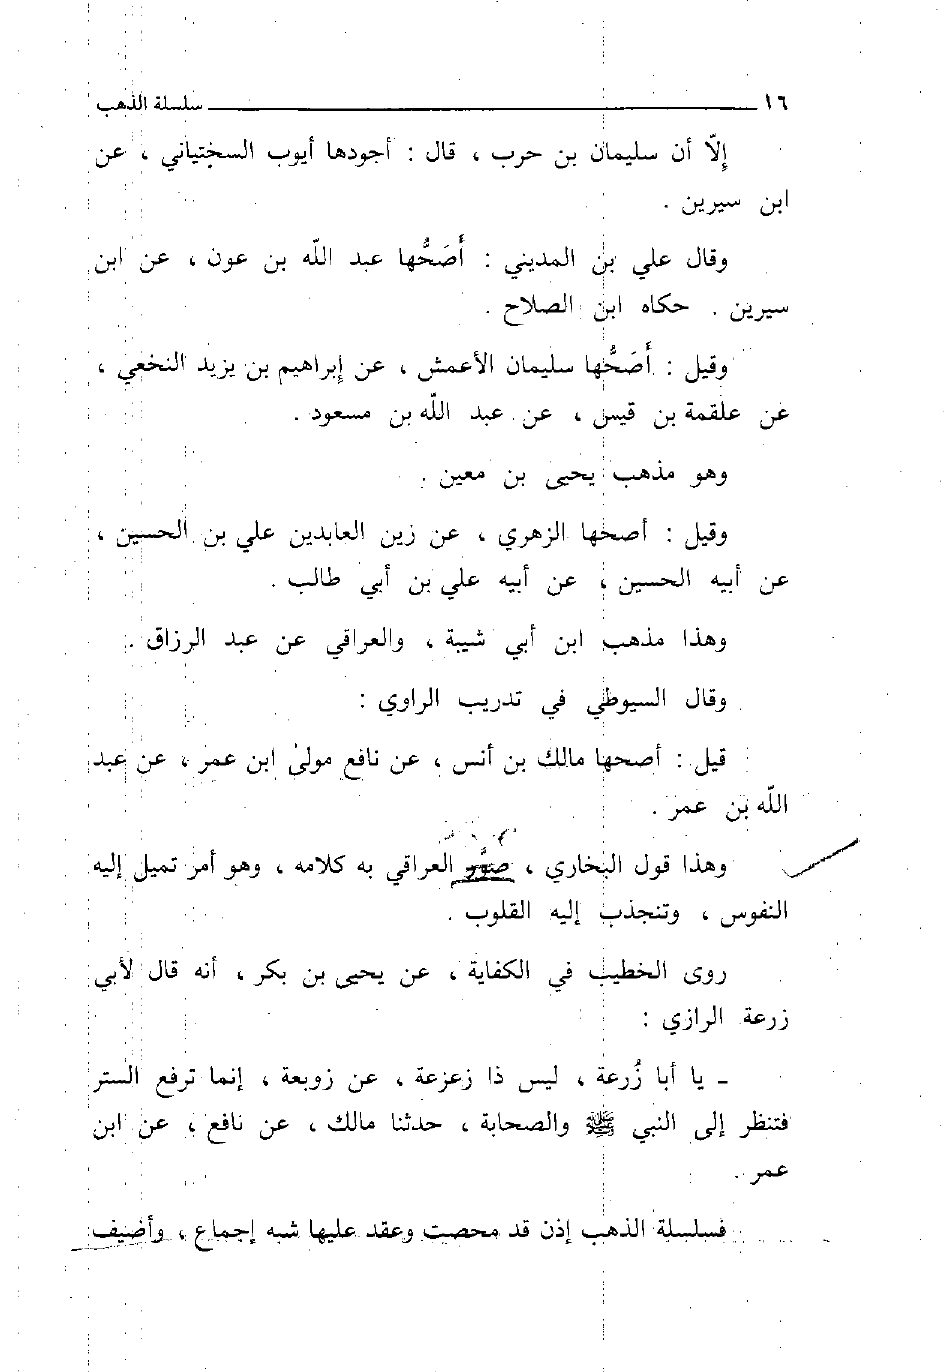 ١٦ سلسلة الذهب
إلّا أن سليمان بن حرب ، قال : أجودها أيوب السختياني ، عن
ابن سيرين .
وقال علي بن المديني : أَصَحُّها عبد اللّه بن عون ، عن ابن
سيرين . حكاه ابن الصلاح .
وقيل : أَصَحُّها سليمان الأعمش ، عن إبراهيم بن يزيد النخعي ،
عن علقمة بن قيس ، عن عبد اللّه بن مسعود .
وهو مذهب يحيى بن معين .
وقيل : أصحها الزهري ، عن زين العابدين علي بن الحسين ،
عن أبيه الحسين ، عن أبيه علي بن أبي طالب .
وهذا مذهب ابن أبي شيبة ، والعراقي عن عبد الرزاق .
وقال السيوطي في تدريب الراوي :
قيل : أصحها مالك بن أنس ، عن نافع مولىٰ ابن عمر ، عن عبد
اللّه بن عمر .
وهذا قول البخاري ، صَوَّر العراقي به كلامه ، وهو أمر تميل إليه
النفوس ، وتنجذب إليه القلوب .
روى الخطيب في الكفاية ، عن يحيى بن بكر ، أنه قال لأبي
زرعة الرازي :
ـ يا أبا زُرعة ، ليس ذا زعزعة ، عن زوبعة ، إنما ترفع الستر
فتنظر إلى النبي ﷺ والصحابة ، حدثنا مالك ، عن نافع ، عن ابن
عمر .
فسلسلة الذهب إذن قد محصت وعقد عليها شبه إجماع ، وأضيف